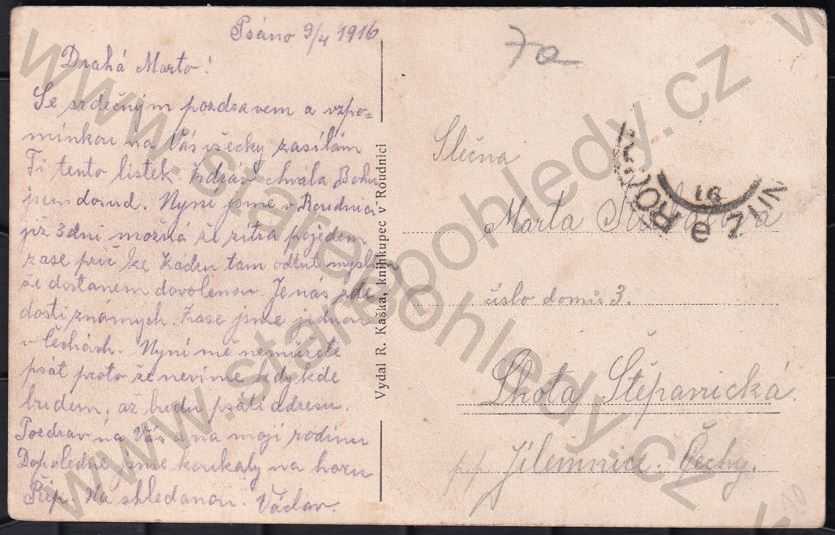 Psáno 9/4 1916
Drahá Marto!
Se srdečným pozdravem a vzpo-
mínkou na Vás všecky zasílám
Ti tento lístek. Zdráv chvála Bohu
jsem dosud. Nyní jsme v Roudnici
již 3 dni možná že zítra pojedem
zase pryč ke Kadani tam odtud myslím
že dostanem dovolenou. Je nás zde
dosti známých. Zase jsme jednou
v Čechách. Nyní mě nemůžete
psát proto že nevíme kdy kde
budem, až budu psáti adresu.
Pozdrav na Vás a na moji rodinu
Dopoledne jsme koukaly na horu
Říp. Na shledanou. Václav.
Vydal R. Kaška, knihkupec v Roudnici
70
Slečna
Marta
číslo domu 3.
Lhota Štěpanická
pp. Jilemnice. Čechy.
ROUDNI
16
www.staropohledy.cz
www.staropohledy.cz